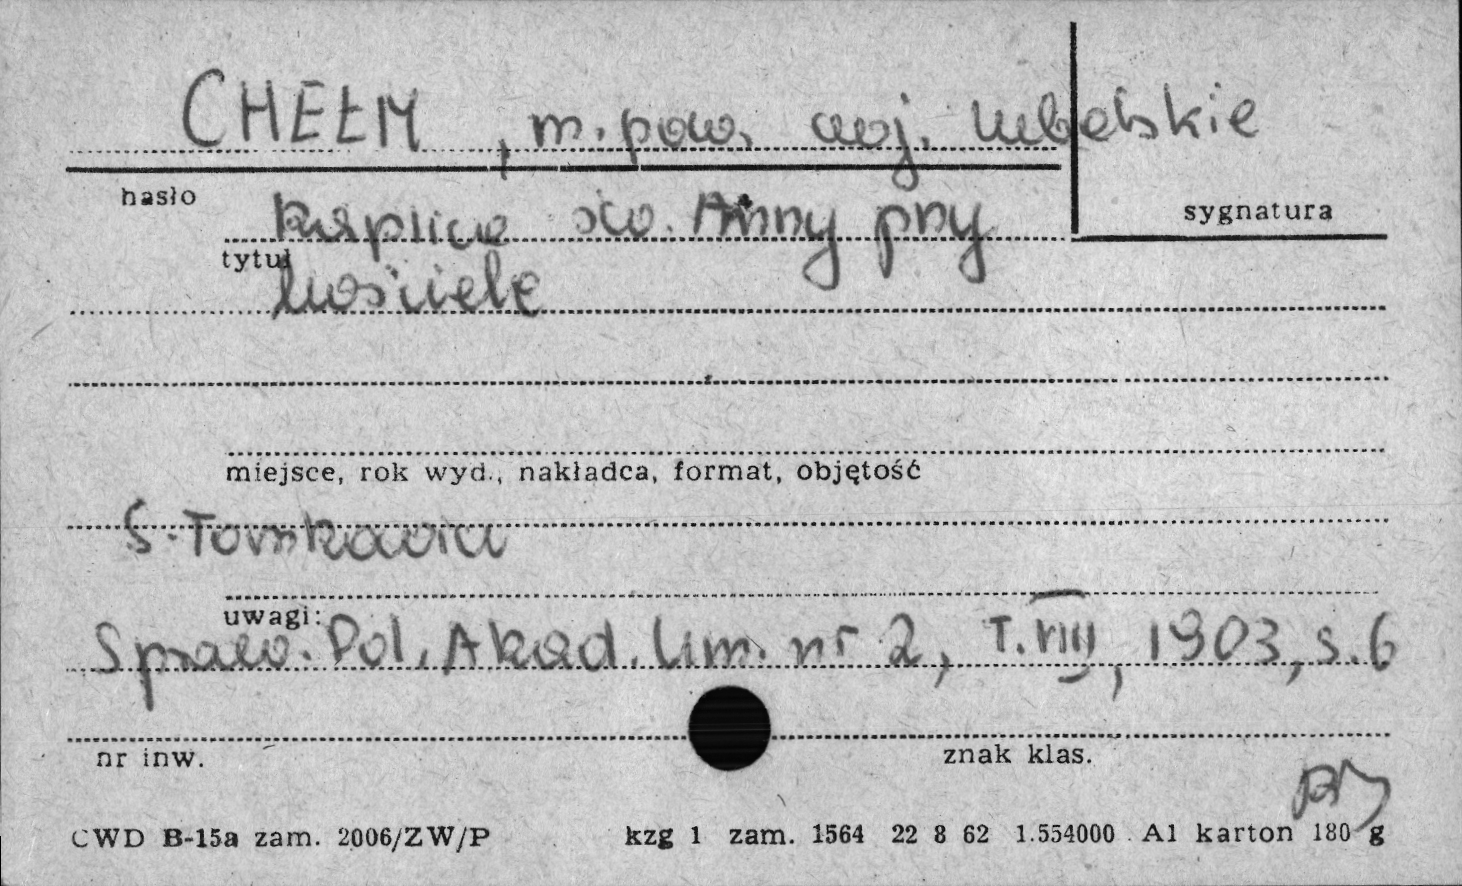 CHEŁM, m. pow. woj. lubelskie
hasło
sygnatura
Kaplica św. Anny przy
tytuł
kościele
miejsce, rok wyd., nakładca, format, objętość
S. Tomkowicz
uwagi:
Spraw. Pol. Akad. Um. nr 2, T. VIII, 1903, s. 6
nr inw.
znak klas.
CWD B-15a zam. 2006/ZW/P
kzg 1 zam. 1564 22 8 62 1.554000 A1 karton 180 g